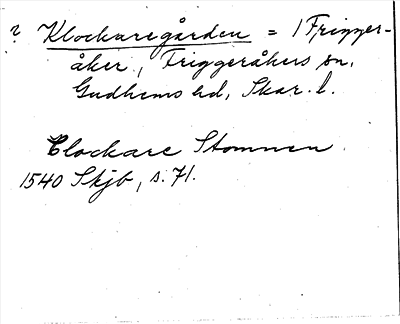 ? Klockaregården = 1 Frigger-
åker, Friggeråkers sn,
Gudhems hd, Skar. l.
Clockare Stommen
1540 Skjb, s. 71.